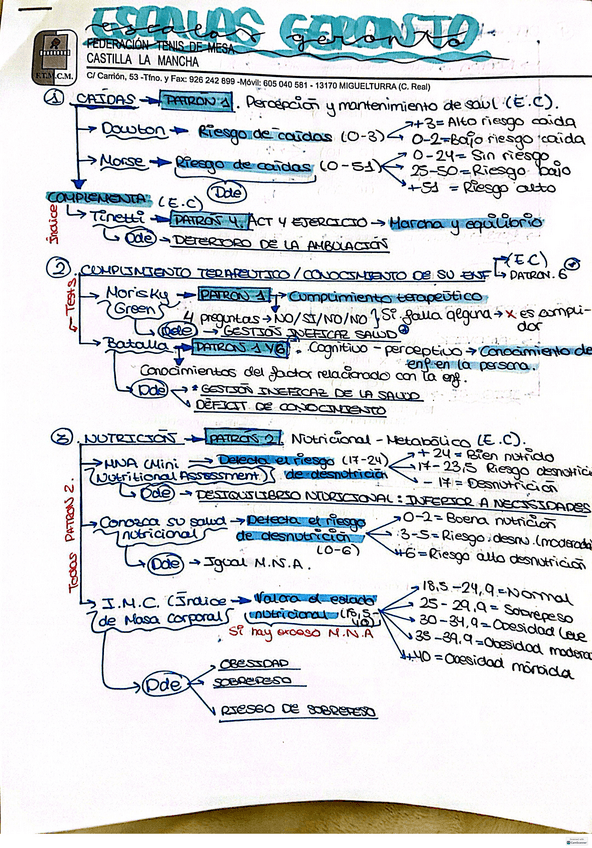 ESCALAS GERONTO
escalas geronto
FEDERACIÓN TENIS DE MESA
CASTILLA LA MANCHA
F.T.M.C.M.
C/ Carrión, 53 -Tfno. y Fax: 926 242 899 -Móvil: 605 040 581 - 13170 MIGUELTURRA (C. Real)
1 CAÍDAS → PATRÓN 1. Percepción y mantenimiento de salud (E.C).
→ Dowton → Riesgo de caídas (0-3)
+3= Alto riesgo caída
0-2= Bajo riesgo caída
→ Morse → Riesgo de caídas (0-51)
0-24 = Sin riesgo
25-50= Riesgo bajo
+51 = Riesgo alto
Dde
COMPLEMENTA (E.C)
Índice
→ Tinetti → PATRÓN 4. ACT Y EJERCICIO → Marcha y equilibrio
→ Dde → DETERIORO DE LA AMBULACIÓN
2 CUMPLIMIENTO TERAPEUTICO/CONOCIMIENTO DE SU ENF
(E.C)
PATRÓN. 6
← Tests
→ Morisky Green → PATRÓN 1 → Cumplimiento terapeútico
4 preguntas → NO/SI/NO/NO } Si falla alguna → x es cumplidor
→ Dde → GESTIÓN INEFICAZ SALUD
→ Batalla → PATRÓN 1 Y 6. Cognitivo - perceptivo → Conocimiento de
enf en la persona.
Conocimientos del factor relacionado con la enf.
Dde → * GESTIÓN INEFICAZ DE LA SALUD
DÉFICIT DE CONOCIMIENTO
3 NUTRICIÓN → PATRÓN 2. Nutricional - Metabólico (E.C).
Todas PATRÓN 2.
→ MNA (Mini → Detecta el riesgo (17-24)
Nutritional Assessment) de desnutrición
+ 24 = Bien nutrido
17-23,5 Riesgo desnutrici
- 17 = Desnutrición
→ Dde → DESEQUILIBRIO NUTRICIONAL: INFERIOR A NECESIDADES
→ Conozca su salud → Detecta el riesgo
nutricional de desnutrición
(0-6)
0-2 = Buena nutrición
3-5 = Riesgo desnu. (moderado
+6= Riesgo alto desnutrición
→ Dde → Igual M.N.A.
→ I.M.C. (Índice → Valora el estado
de Masa corporal) nutricional (18,5-40)
Si hay exceso M.N.A
18,5 - 24,9 = Normal
25 - 29,9 = Sobrepeso
30 - 34,9 = Obesidad leve
35 - 39,9 = Obesidad modera
+40 = Obesidad mórbida
Dde
OBESIDAD
SOBREPESO
RIESGO DE SOBREPESO